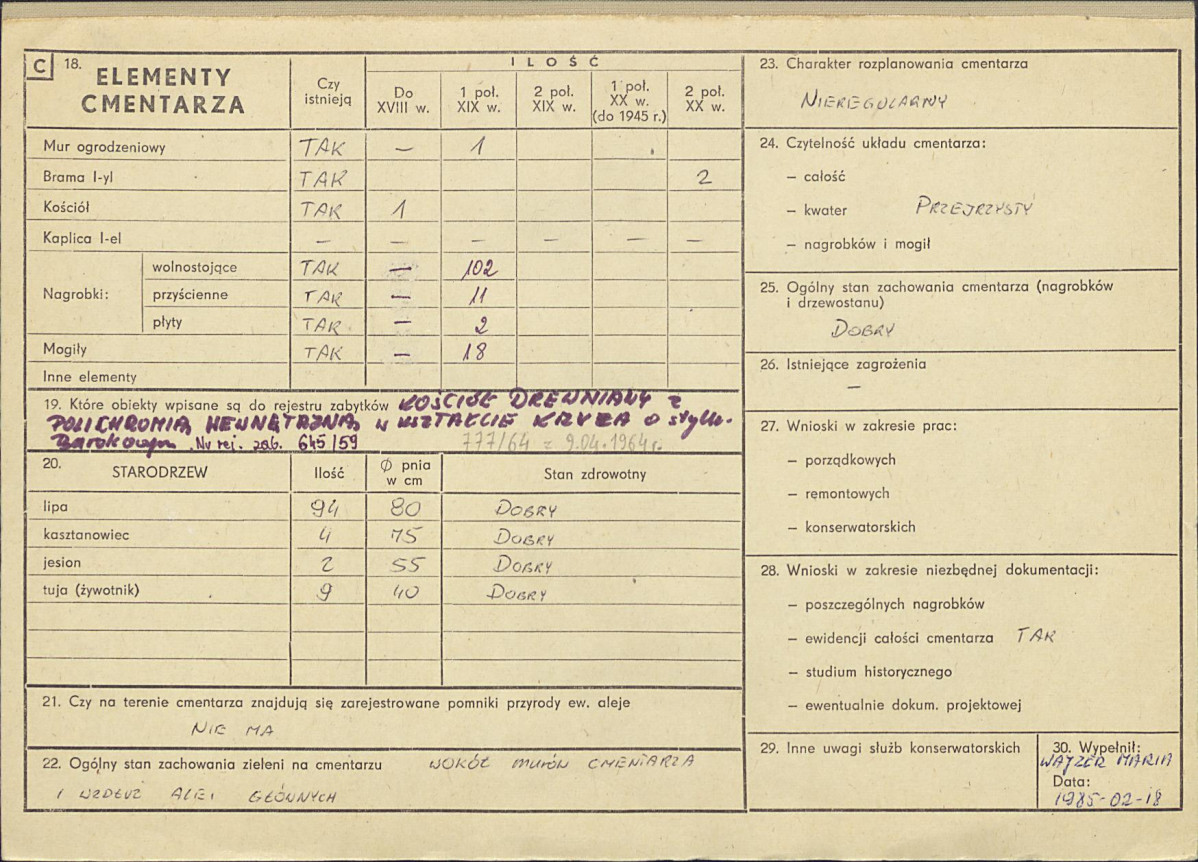 C 18. ELEMENTY CMENTARZA
Czy istnieją
ILOŚĆ
Do XVIII w.
1 poł. XIX w.
2 poł. XIX w.
1 poł. XX w. (do 1945 r.)
2 poł. XX w.
Mur ogrodzeniowy TAK — 1
Brama I-yl TAK 2
Kościół TAK 1
Kaplica I-el — — — — — —
Nagrobki:
wolnostojące TAK — 102
przyścienne TAK — 11
płyty TAK — 2
Mogiły TAK — 18
Inne elementy
19. Które obiekty wpisane są do rejestru zabytków KOŚCIÓŁ DREWNIANY z
POLICHROMIĄ WEWNĘTRZNĄ, w KSZTAŁCIE KRZYŻA o stylu
Barokowym. Nr rej. zab. 645/59 777/64 z 9.04.1964 r.
20. STARODRZEW
Ilość
Ø pnia w cm
Stan zdrowotny
lipa 94 80 DOBRY
kasztanowiec 4 75 DOBRY
jesion 2 55 DOBRY
tuja (żywotnik) 9 40 DOBRY
21. Czy na terenie cmentarza znajdują się zarejestrowane pomniki przyrody ew. aleje
NIE MA
22. Ogólny stan zachowania zieleni na cmentarzu WOKÓŁ MURÓW CMENTARZA
I WZDŁUŻ ALEI GŁÓWNYCH
23. Charakter rozplanowania cmentarza
NIEREGULARNY
24. Czytelność układu cmentarza:
– całość
– kwater PRZEJRZYSTY
– nagrobków i mogił
25. Ogólny stan zachowania cmentarza (nagrobków
i drzewostanu)
DOBRY
26. Istniejące zagrożenia
—
27. Wnioski w zakresie prac:
– porządkowych
– remontowych
– konserwatorskich
28. Wnioski w zakresie niezbędnej dokumentacji:
– poszczególnych nagrobków
– ewidencji całości cmentarza TAK
– studium historycznego
– ewentualnie dokum. projektowej
29. Inne uwagi służb konserwatorskich
30. Wypełnił:
WAJZER MARIA
Data:
1985-02-18